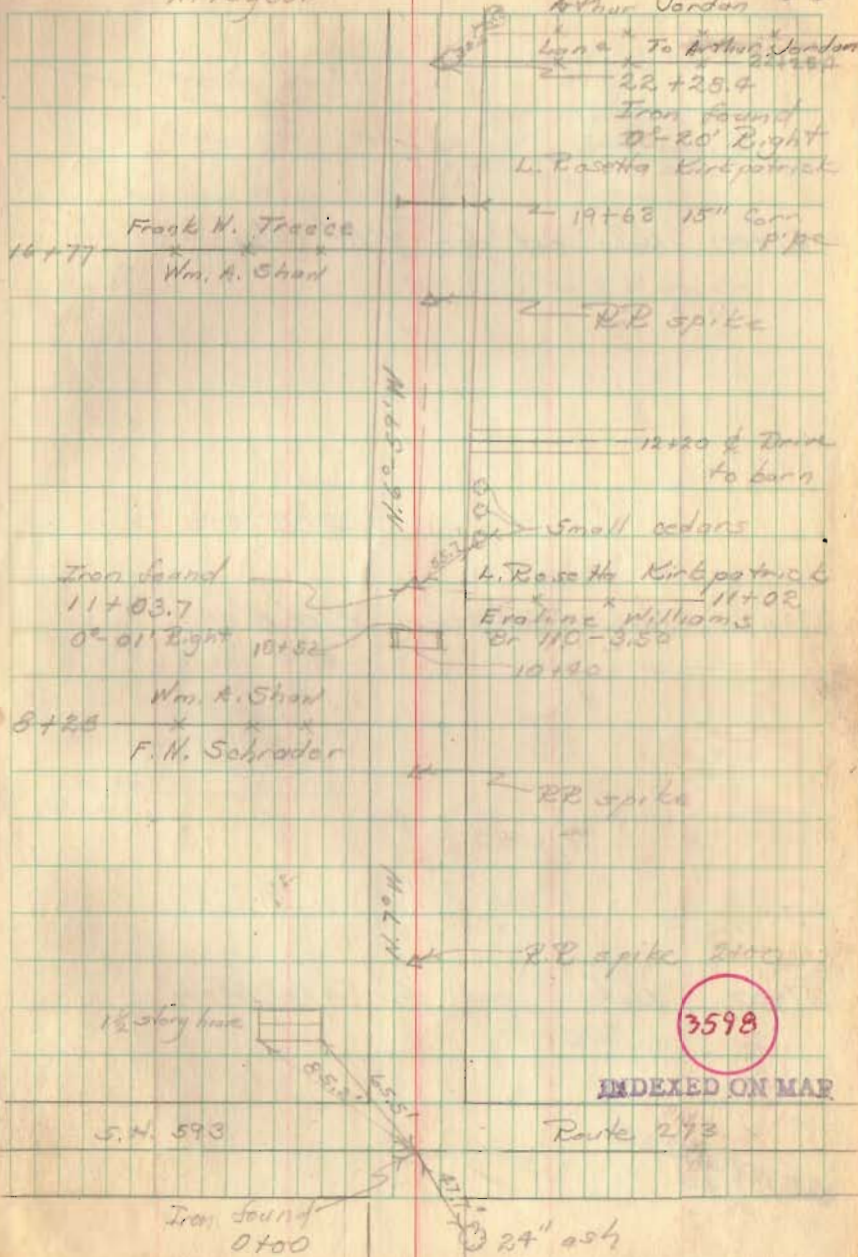 Arthur Jordan
Lane To Arthur Jordan
22+25.4
22+25.4
Iron found
0°-20' Right
L. Rosetta Kirkpatrick
19+63 15" Corr
pipe
Frank W. Treece
16+77
Wm. A. Shaw
RR spike
N. 6°-59' W
12+20 ₵ Drive
to barn
Small cedars
Iron found
11+03.7
0°-01' Right
L. Rosetta Kirkpatrick
11+02
Eraline Williams
Br 110-3.50
10+52
10+40
Wm. A. Shaw
8+28
F. N. Schrader
RR spike
N. 7° W
R.R. spike 2+00
1½ story house
85.2'
65.5'
3598
INDEXED ON MAP
S.H. 593
Route 273
47.7'
Iron found
0+00
24" ash